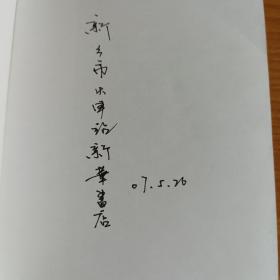 新乡市火车站新华书店
07.5.26